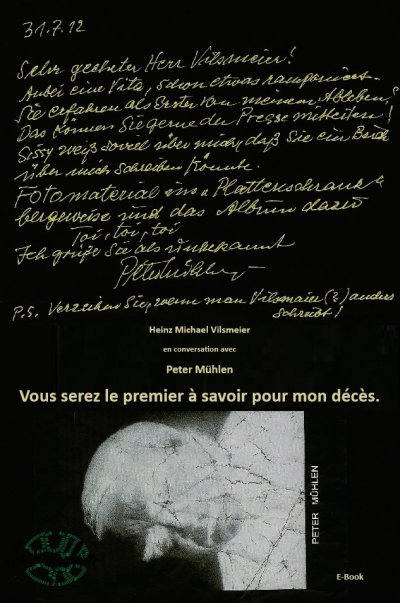 31.7.12
Sehr geehrter Herr Vilsmeier!
Anbei eine Vita, schon etwas ramponiert.
Sie erfahren als Erster von meinem Ableben.
Das können Sie gerne der Presse mitteilen!
Sissy weiß soviel über mich, daß Sie ein Buch
über mich schreiben könnte.
Fotomaterial im "Plattenschrank"
bergeweise und das Album dazu
Toi, toi, toi
Ich grüße Sie als unbekannt
P.S. Verzeihen Sie, wenn man Vilsmaier (?) anders
schreibt!
Heinz Michael Vilsmeier
en conversation avec
Peter Mühlen
Vous serez le premier à savoir pour mon décès.
PETER MÜHLEN
E-Book